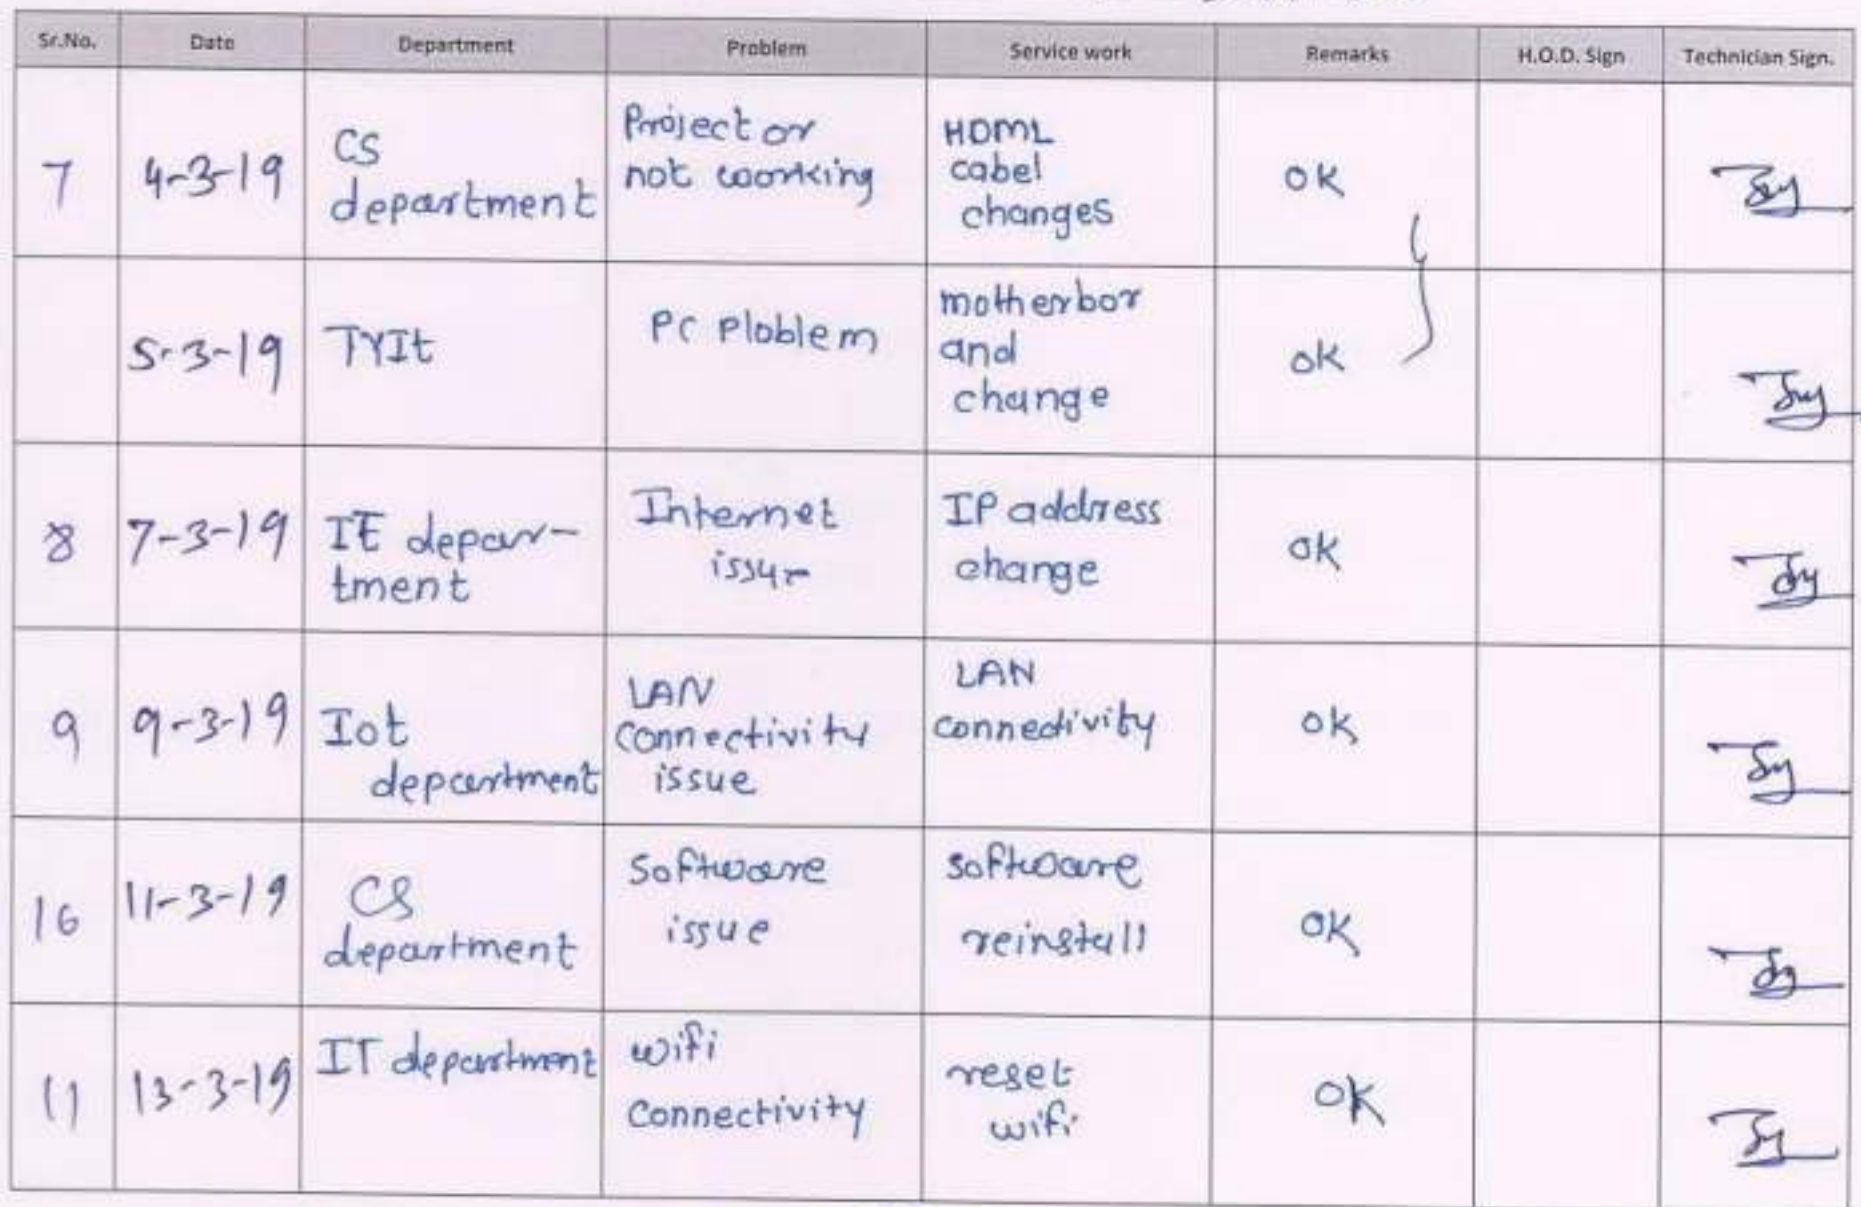 Sr.No. Date Department Problem Service work Remarks H.O.D. Sign Technician Sign.
7 4-3-19 CS department Projector not working HDML cabel changes OK
5-3-19 TYIt PC Ploblem motherbor and change OK
8 7-3-19 IE depar-tment Internet issue IP address change OK
9 9-3-19 Iot department LAN connectivity issue LAN connectivity OK
16 11-3-19 CS department Software issue software reinstall OK
11 13-3-19 IT department wifi connectivity reset wifi OK